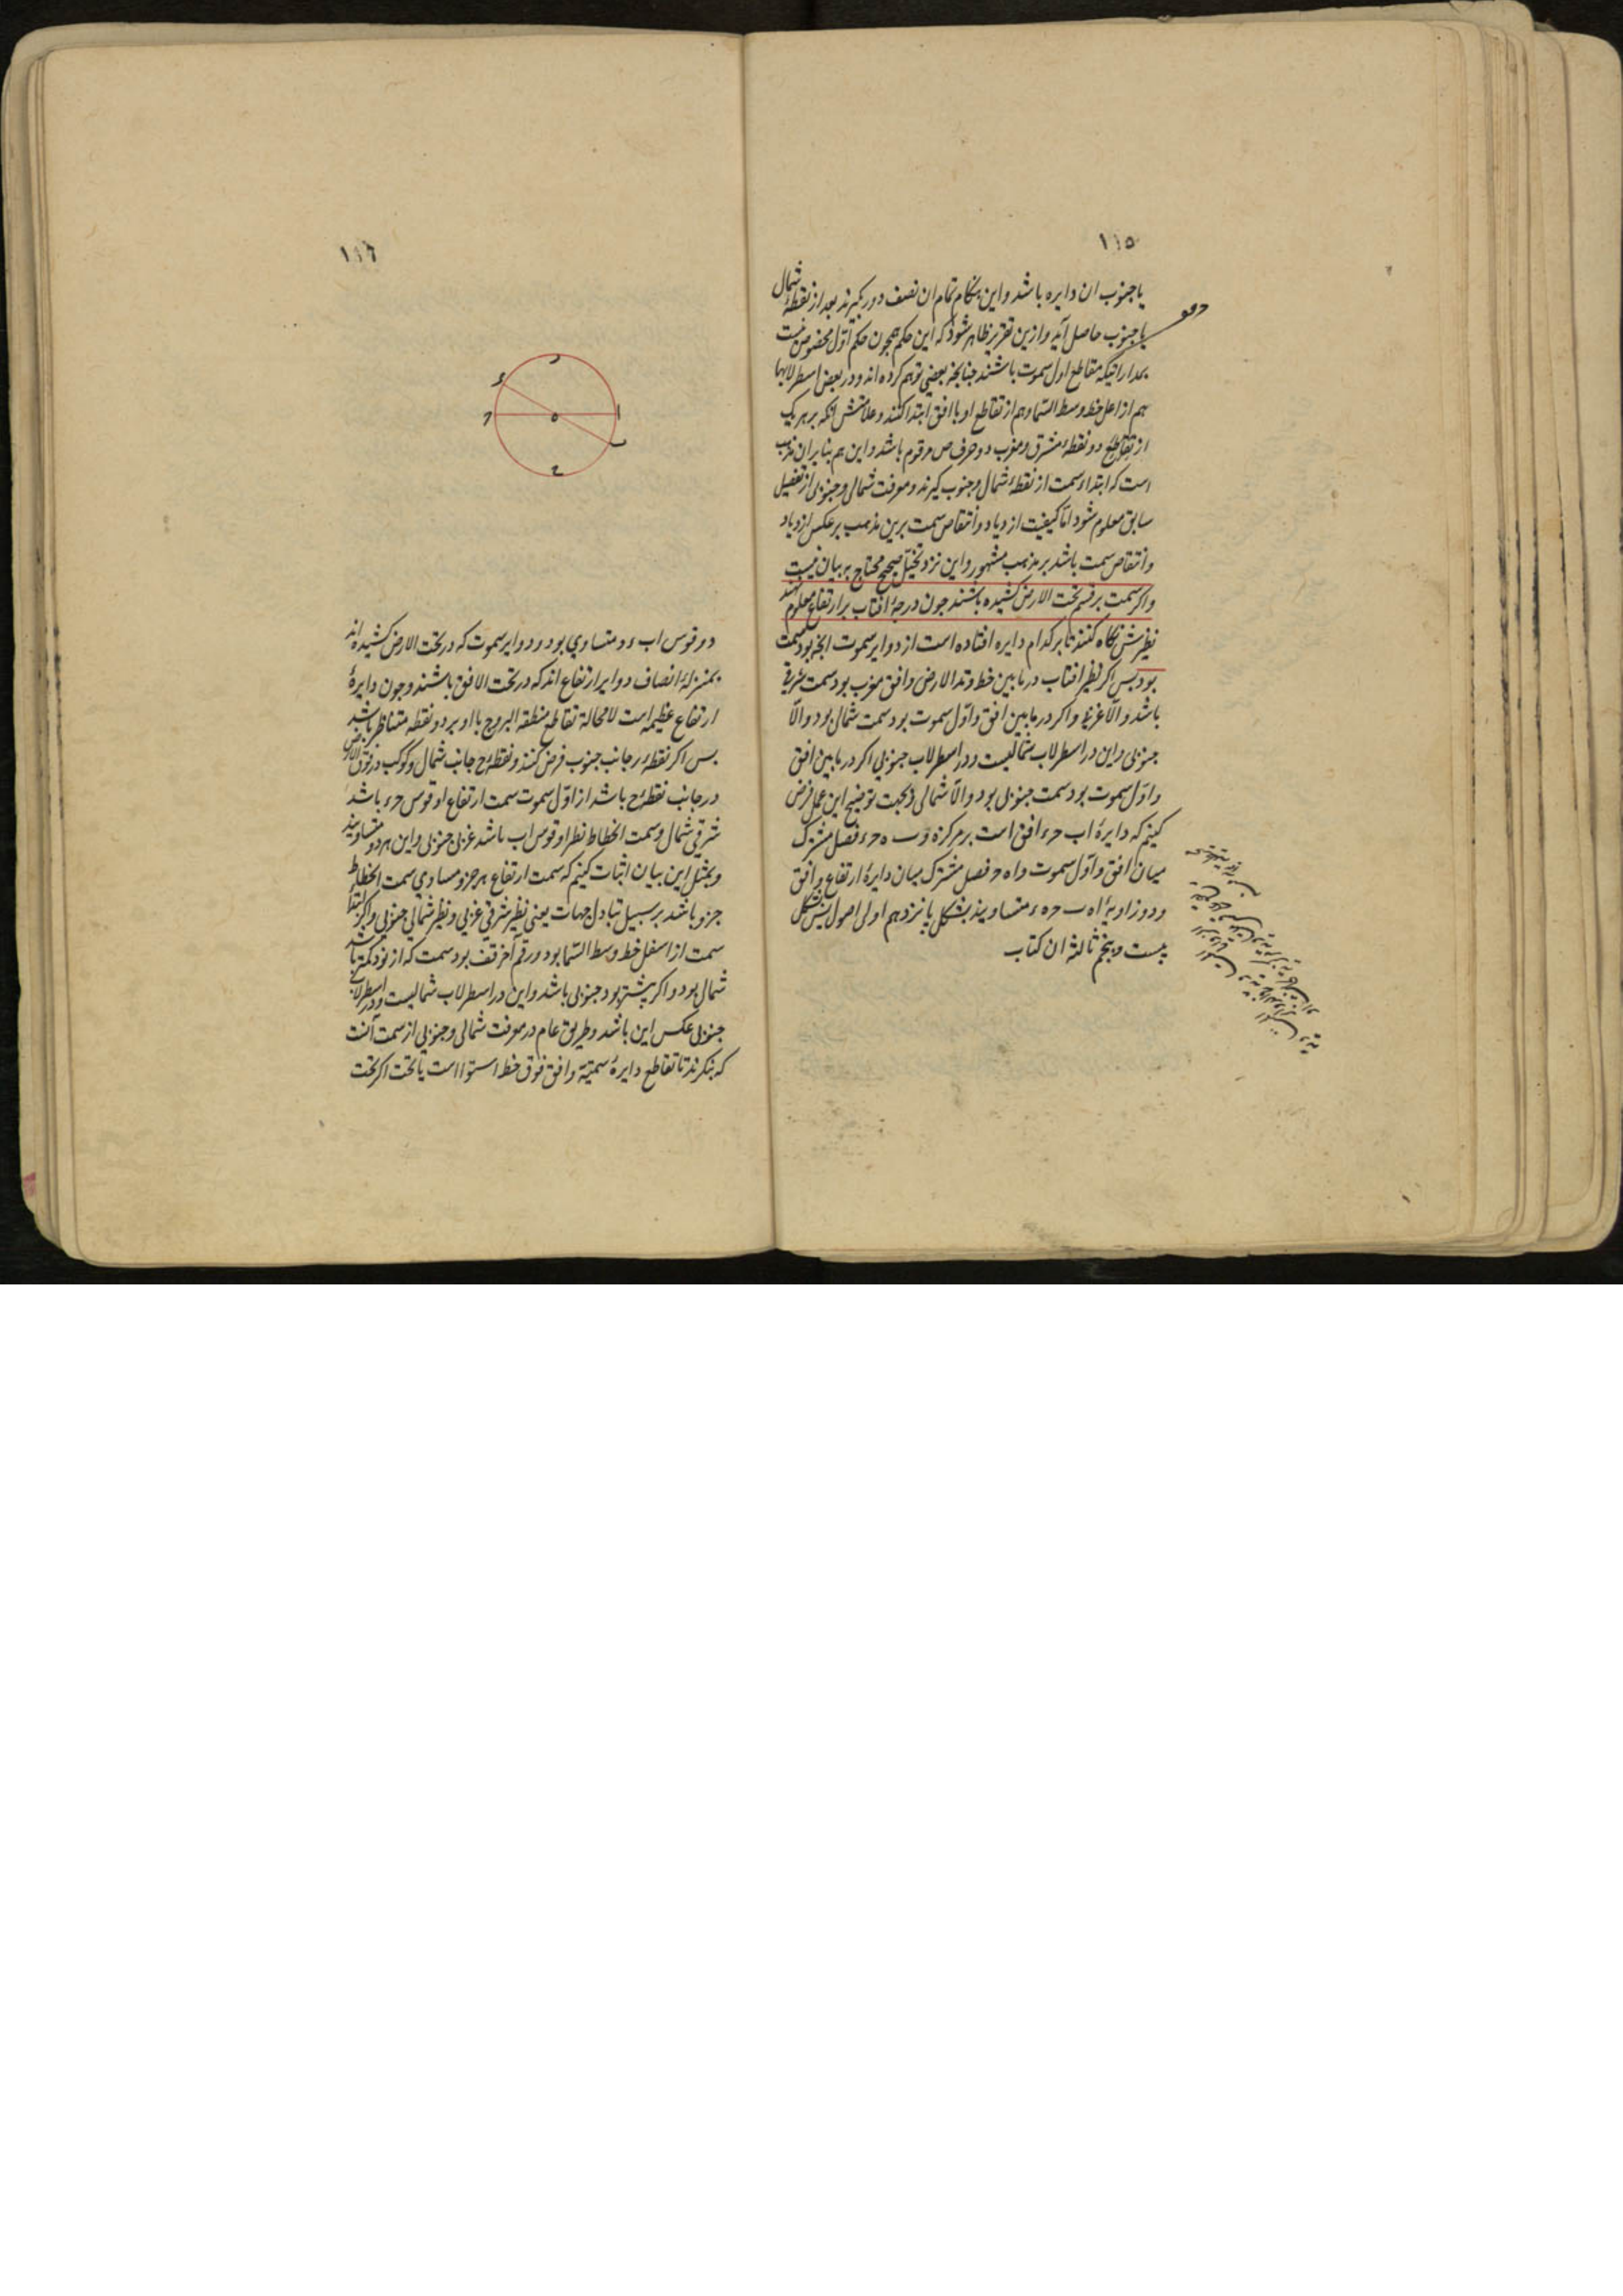 ۱۱۵
یا جنوب ان دایره باشد و این هنکام تمام ان نصف دور بکیرند بعد از نقطهٔ شمال
یا جنوب حاصل آید و ازین تقریر ظاهر شود که این حکم همجون حکم اوّل مخصوص نیست
بمداراتیکه مقاطع اول سموت باشند جنانجه بعضی توهم کرده اند و در بعض اسطرلابها
هم از اعلی خط وسط السّما و هم از تقاطع او با افق ابتدا کنند و علامتش انکه بر هر یک
از تقاطع دو نقطهٔ مشرق و مغرب دو حرف ص مرقوم باشد و این هم بنا بر ان مذهب
است که ابتداء سمت از نقطهٔ شمال و جنوب کیرند و معرفت شمالی و جنوبی از تفصیل
سابق معلوم شود امّا کیفیت ازدیاد و انتقاص سمت برین مذهب بر عکس ازدیاد
و انتقاص سمت باشد بر مذهب مشهور و این نزد تخیّل صحیح محتاج به بیان نیست
و اکر سمت بر قسم تحت الارض کشیده باشند جون درجهٔ افتاب بر ارتفاع معلوم نهند
نظیرش نکاه کنند تا بر کدام دایره افتاده است از دوایر سموت انجه بود سمت
بود بس اکر نظیر افتاب در مابین خط وتد الارض و افق مغرب بود سمت شرقی
باشد و الّا غربی و اکر در مابین افق و اوّل سموت بود سمت شمالی بود و الّا
جنوبی و این در اسطرلاب شمالیست و در اسطرلاب جنوبی اکر در مابین افق
و اوّل سموت بود سمت جنوبی بود و الّا شمالی و بجهت توضیح این عمل فرض
کنیم که دایرهٔ اب حء افق است بر مرکز ه و ب ه ء فصل مشترک
میان افق و اوّل سموت و ا ه ح فصل مشترک میان دایرهٔ ارتفاع و افق
و دو زاویهٔ ا ه ب ح ه ء متساویند بشکل بانزدهم اولی اصول بس بشکل
بیست و بنجم ثالثه ان کتاب
۱۱۶
ر
ء
ح
ه
ا
ب
ح
دو قوس اب ء ح متساوی بود و دوایر سموت که در تحت الارض کشیده اند
بمنزلهٔ انصاف دوایر ارتفاع اند که در تحت الافق باشند و جون دایرهٔ
ارتفاع عظیمه است لا محالة تقاطع منطقة البروج با او بر دو نقطهٔ متناظر باشد
بس اکر نقطهٔ ر جانب جنوب فرض کنند و نقطهٔ ح جانب شمال و کوکب در فوق الارض
در جانب نقطهٔ ح باشد از اوّل سموت سمت ارتفاع او قوس حء باشد
شرقی شمالی و سمت انحطاط نظیر او قوس اب باشد غربی جنوبی و این هر دو متساویند
و بمثل این بیان اثبات کنیم که سمت ارتفاع هر جزو مساوی سمت انحطاط
جزو باشد بر سبیل تبادل جهات یعنی نظیر شرقی غربی و نظیر شمالی جنوبی و اکر ابتداء
سمت از اسفل خط وسط السّما بود و رقم آخر قف بود سمت که از نود کمتر باشد
شمالی بود و اکر بیشتر بود جنوبی باشد و این در اسطرلاب شمالیست و در اسطرلاب
جنوبی عکس این باشد و طریق عام در معرفت شمالی و جنوبی از سمت آنست
که بنکرند تا تقاطع دایرهٔ سمتیّه و افق فوق خط استوا است یا تحت اکر تحت